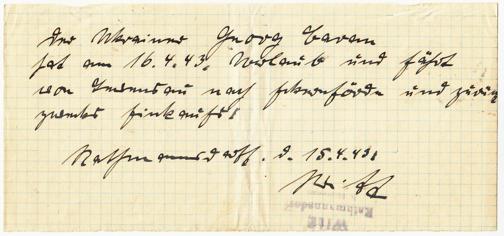 Der Ukrainer Georg Baran
hat am 16.4.43. Urlaub und fährt
von nach Eckernförde und zurück
zwecks Einkaufs!
Rathmannsdorf. d. 15.4.43.
Witt
Witt
Rathmannsdorf